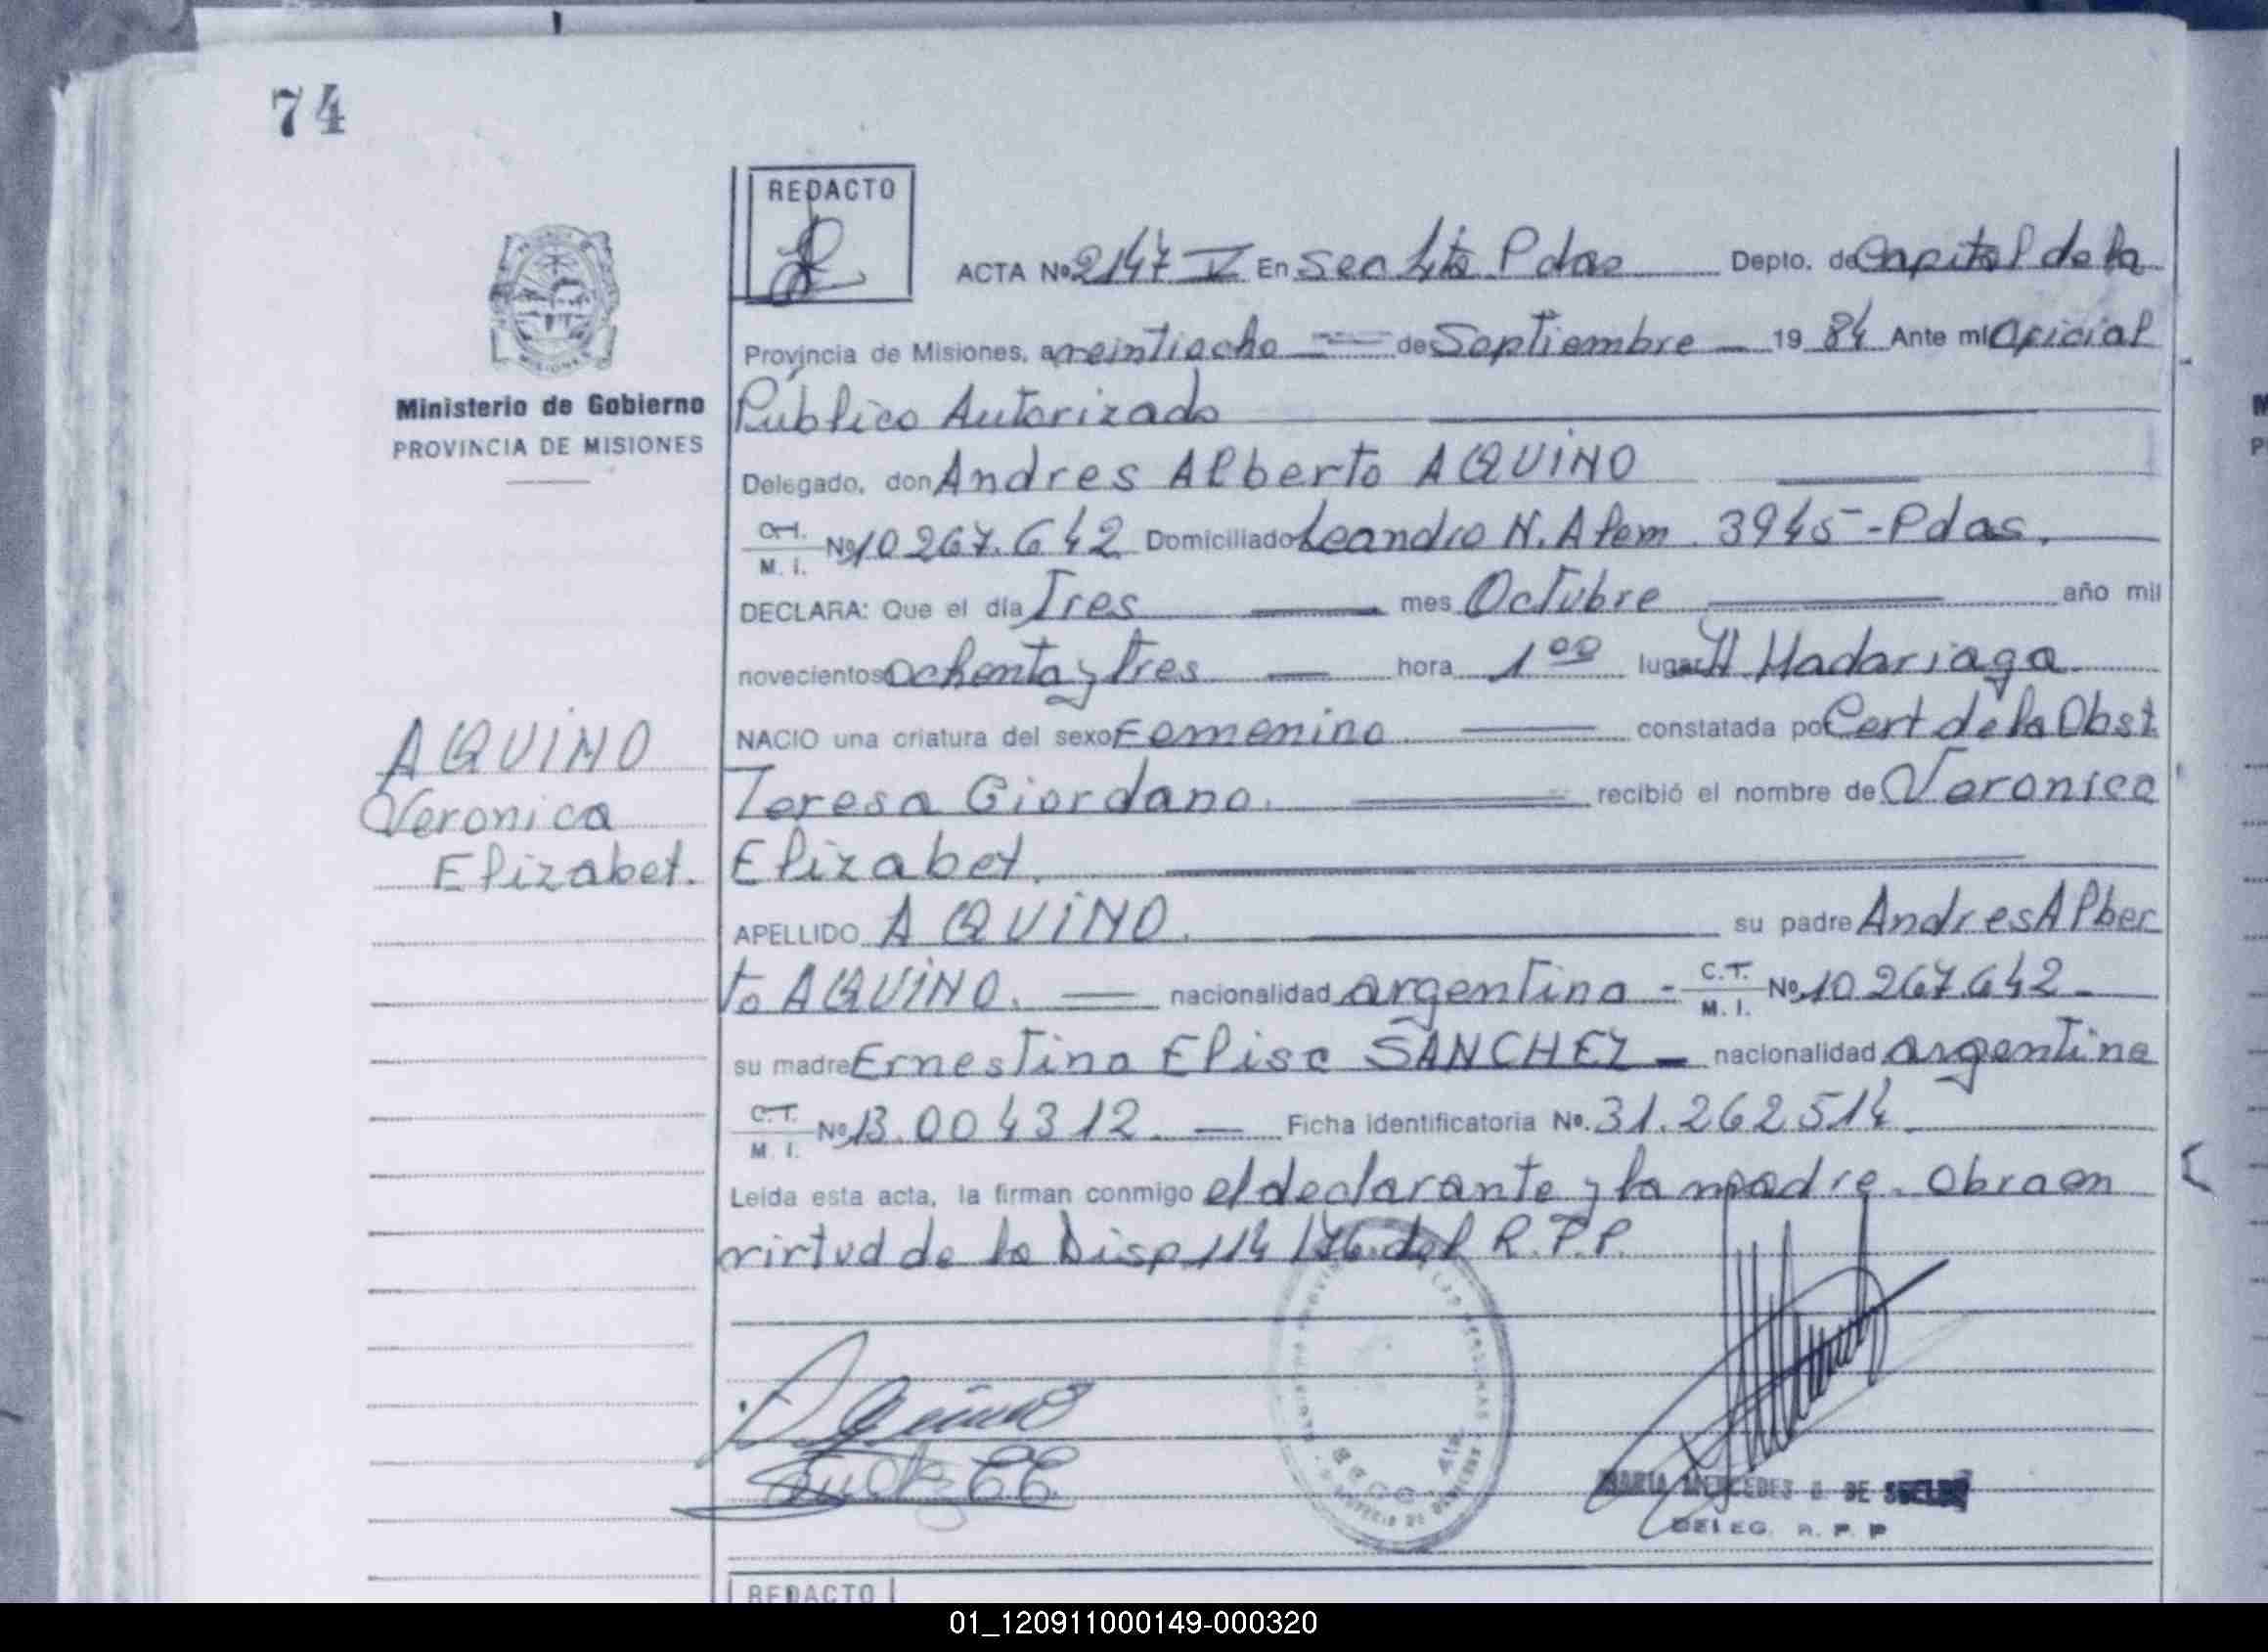 74
REDACTO
ACTA Nº 2147 V En Sec 4ta Pdas Depto. de Capital de la
Provincia de Misiones, a veintiocho de Septiembre 19 84 Ante mi Oficial
Público Autorizado
Ministerio de Gobierno
PROVINCIA DE MISIONES
Delegado, don Andres Alberto AQUINO
C.I. M. I. Nº 10267.642 Domiciliado Leandro N. Alem 3945 - Pdas.
DECLARA: Que el día Tres mes Octubre año mil
novecientos ochenta y tres hora 1 00 lugar H Madariaga
NACIO una criatura del sexo Femenino constatada por Cert de la Obst
AQUINO
Veronica
Elizabet.
Teresa Giordano. recibió el nombre de Veronica
Elizabet.
APELLIDO AQUINO. su padre Andres Alber
to AQUINO. nacionalidad argentino - C.T. M. I. Nº 10267.642
su madre Ernestina Elisa SANCHEZ nacionalidad argentina
C.T. M. I. Nº 13.004312. Ficha identificatoria Nº. 31.262514
Leída esta acta, la firman conmigo el declarante y la madre. Obra en
virtud de la Disp 114/76 del R.P.P.
MARIA MERCEDES G. DE
DELEG. R. P. P
REDACTO
01_120911000149-000320